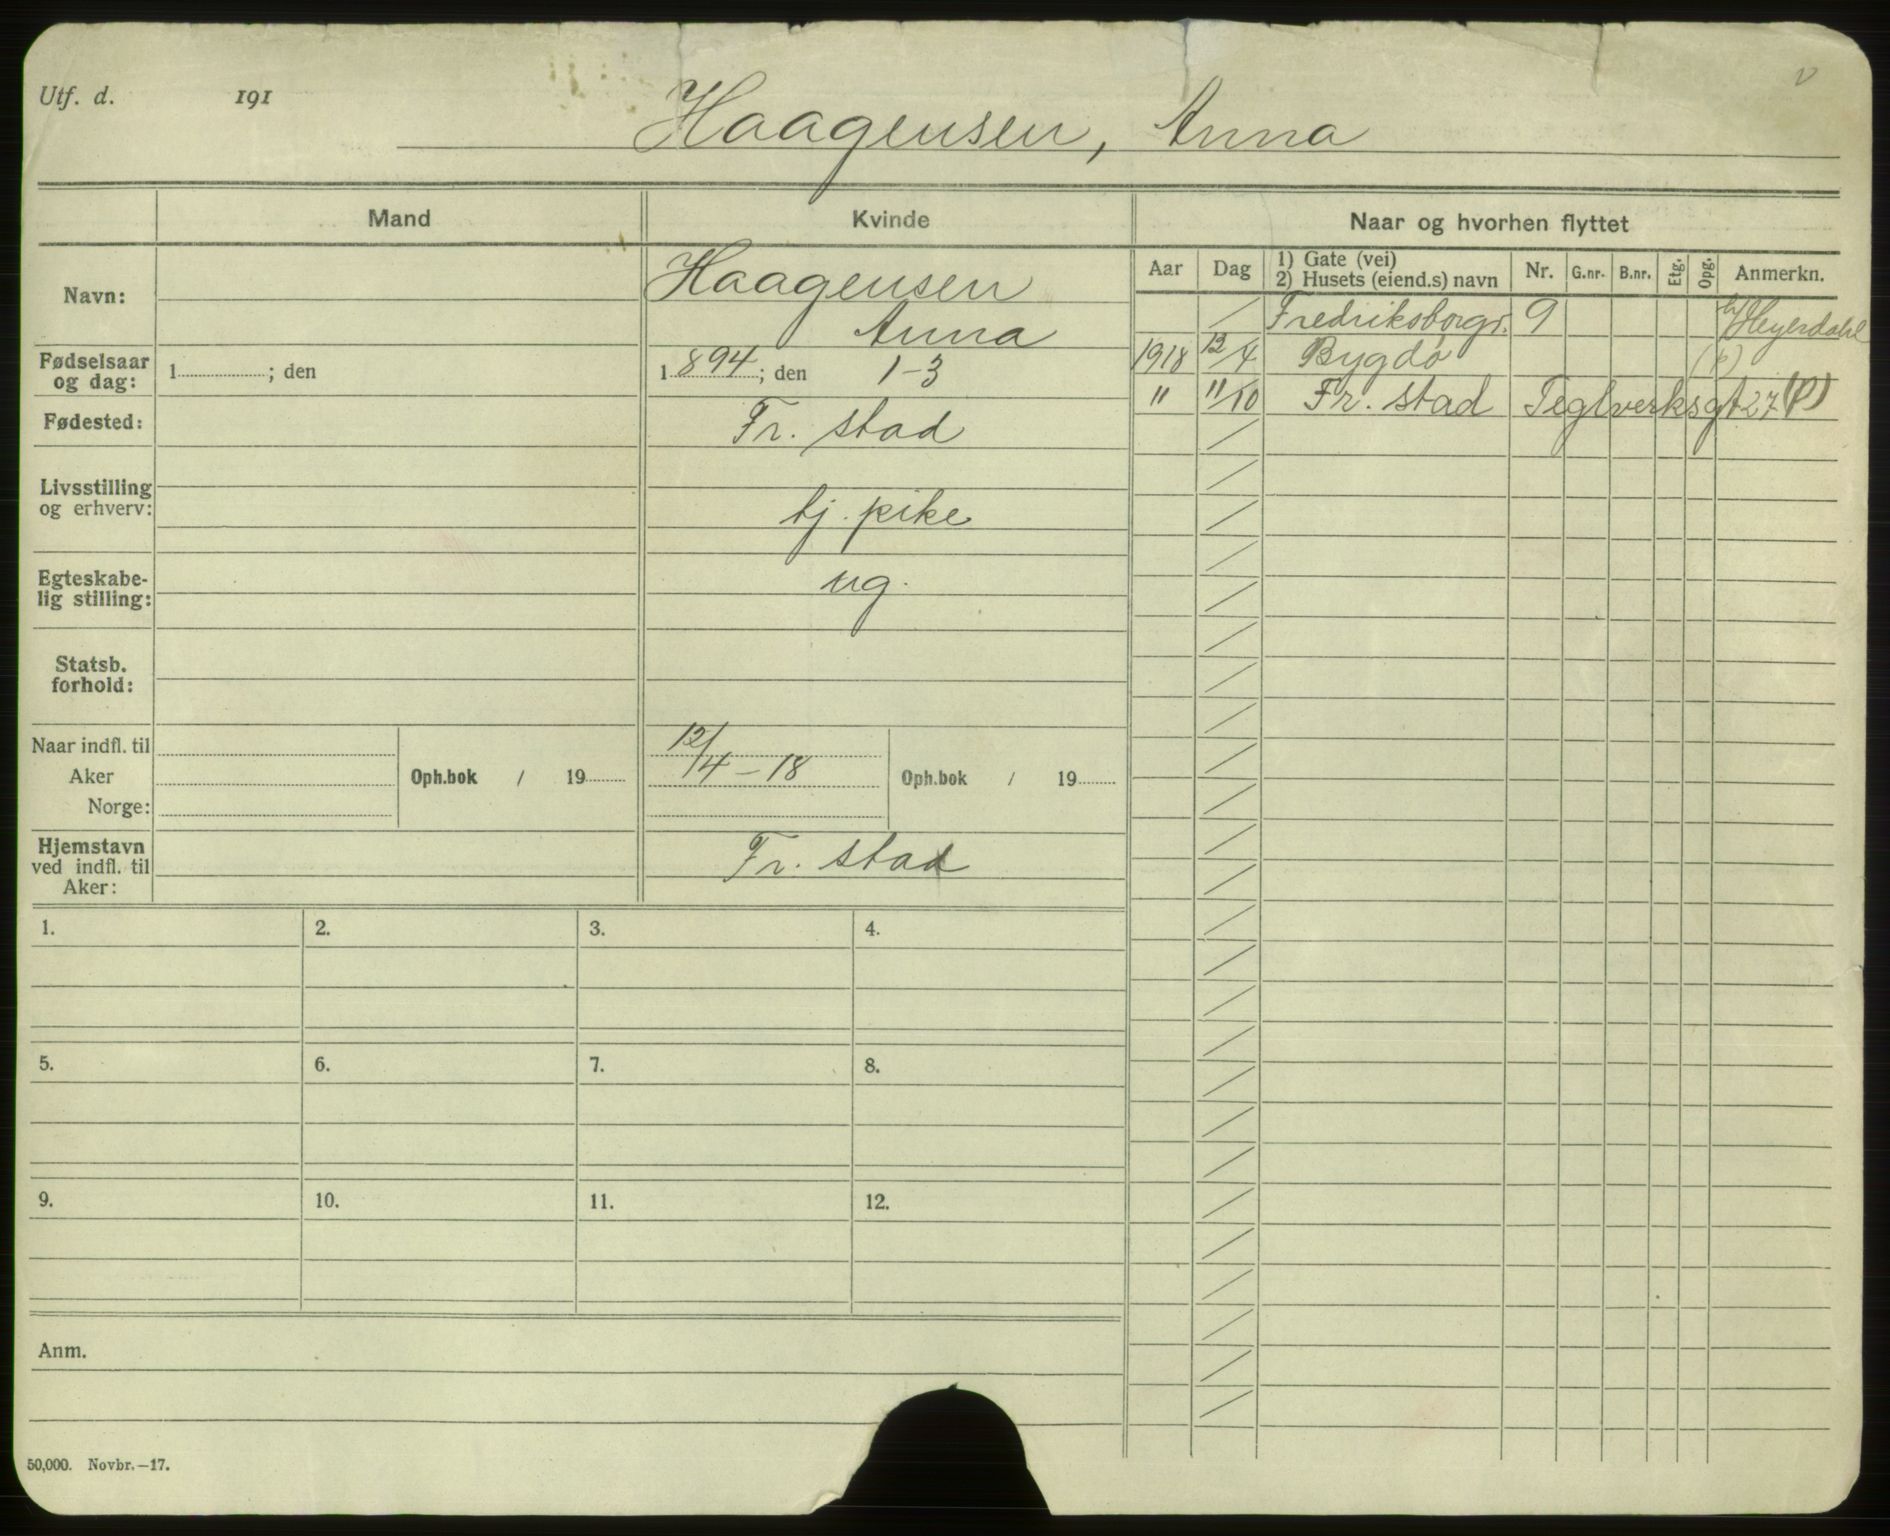 Utf. d. 191
Haagensen, Anna
Mand Kvinde Naar og hvorhen flyttet
Aar Dag 1) Gate (vei) 2) Husets (eiend.s) navn Nr. G.nr. B.nr. Etg. Opg. Anmerkn.
Navn: Haagensen
Anna
Fredriksborgv. 9 Heyerdahl
1918 12/4 Bygdø (p)
" 11/10 Fr. stad Teglverksgt 27 (P)
Fødselsaar
og dag: 1 ; den 1894; den 1-3
Fødested: Fr. stad
Livsstilling
og erhverv: tj. pike
Egteskabe-
lig stilling: ug.
Statsb.
forhold:
Naar indfl. til
Aker Oph.bok / 19 12/4 - 18 Oph.bok / 19
Norge:
Hjemstavn
ved indfl. til
Aker: Fr. stad
1. 2. 3. 4.
5. 6. 7. 8.
9. 10. 11. 12.
Anm.
50,000. Novbr.—17.